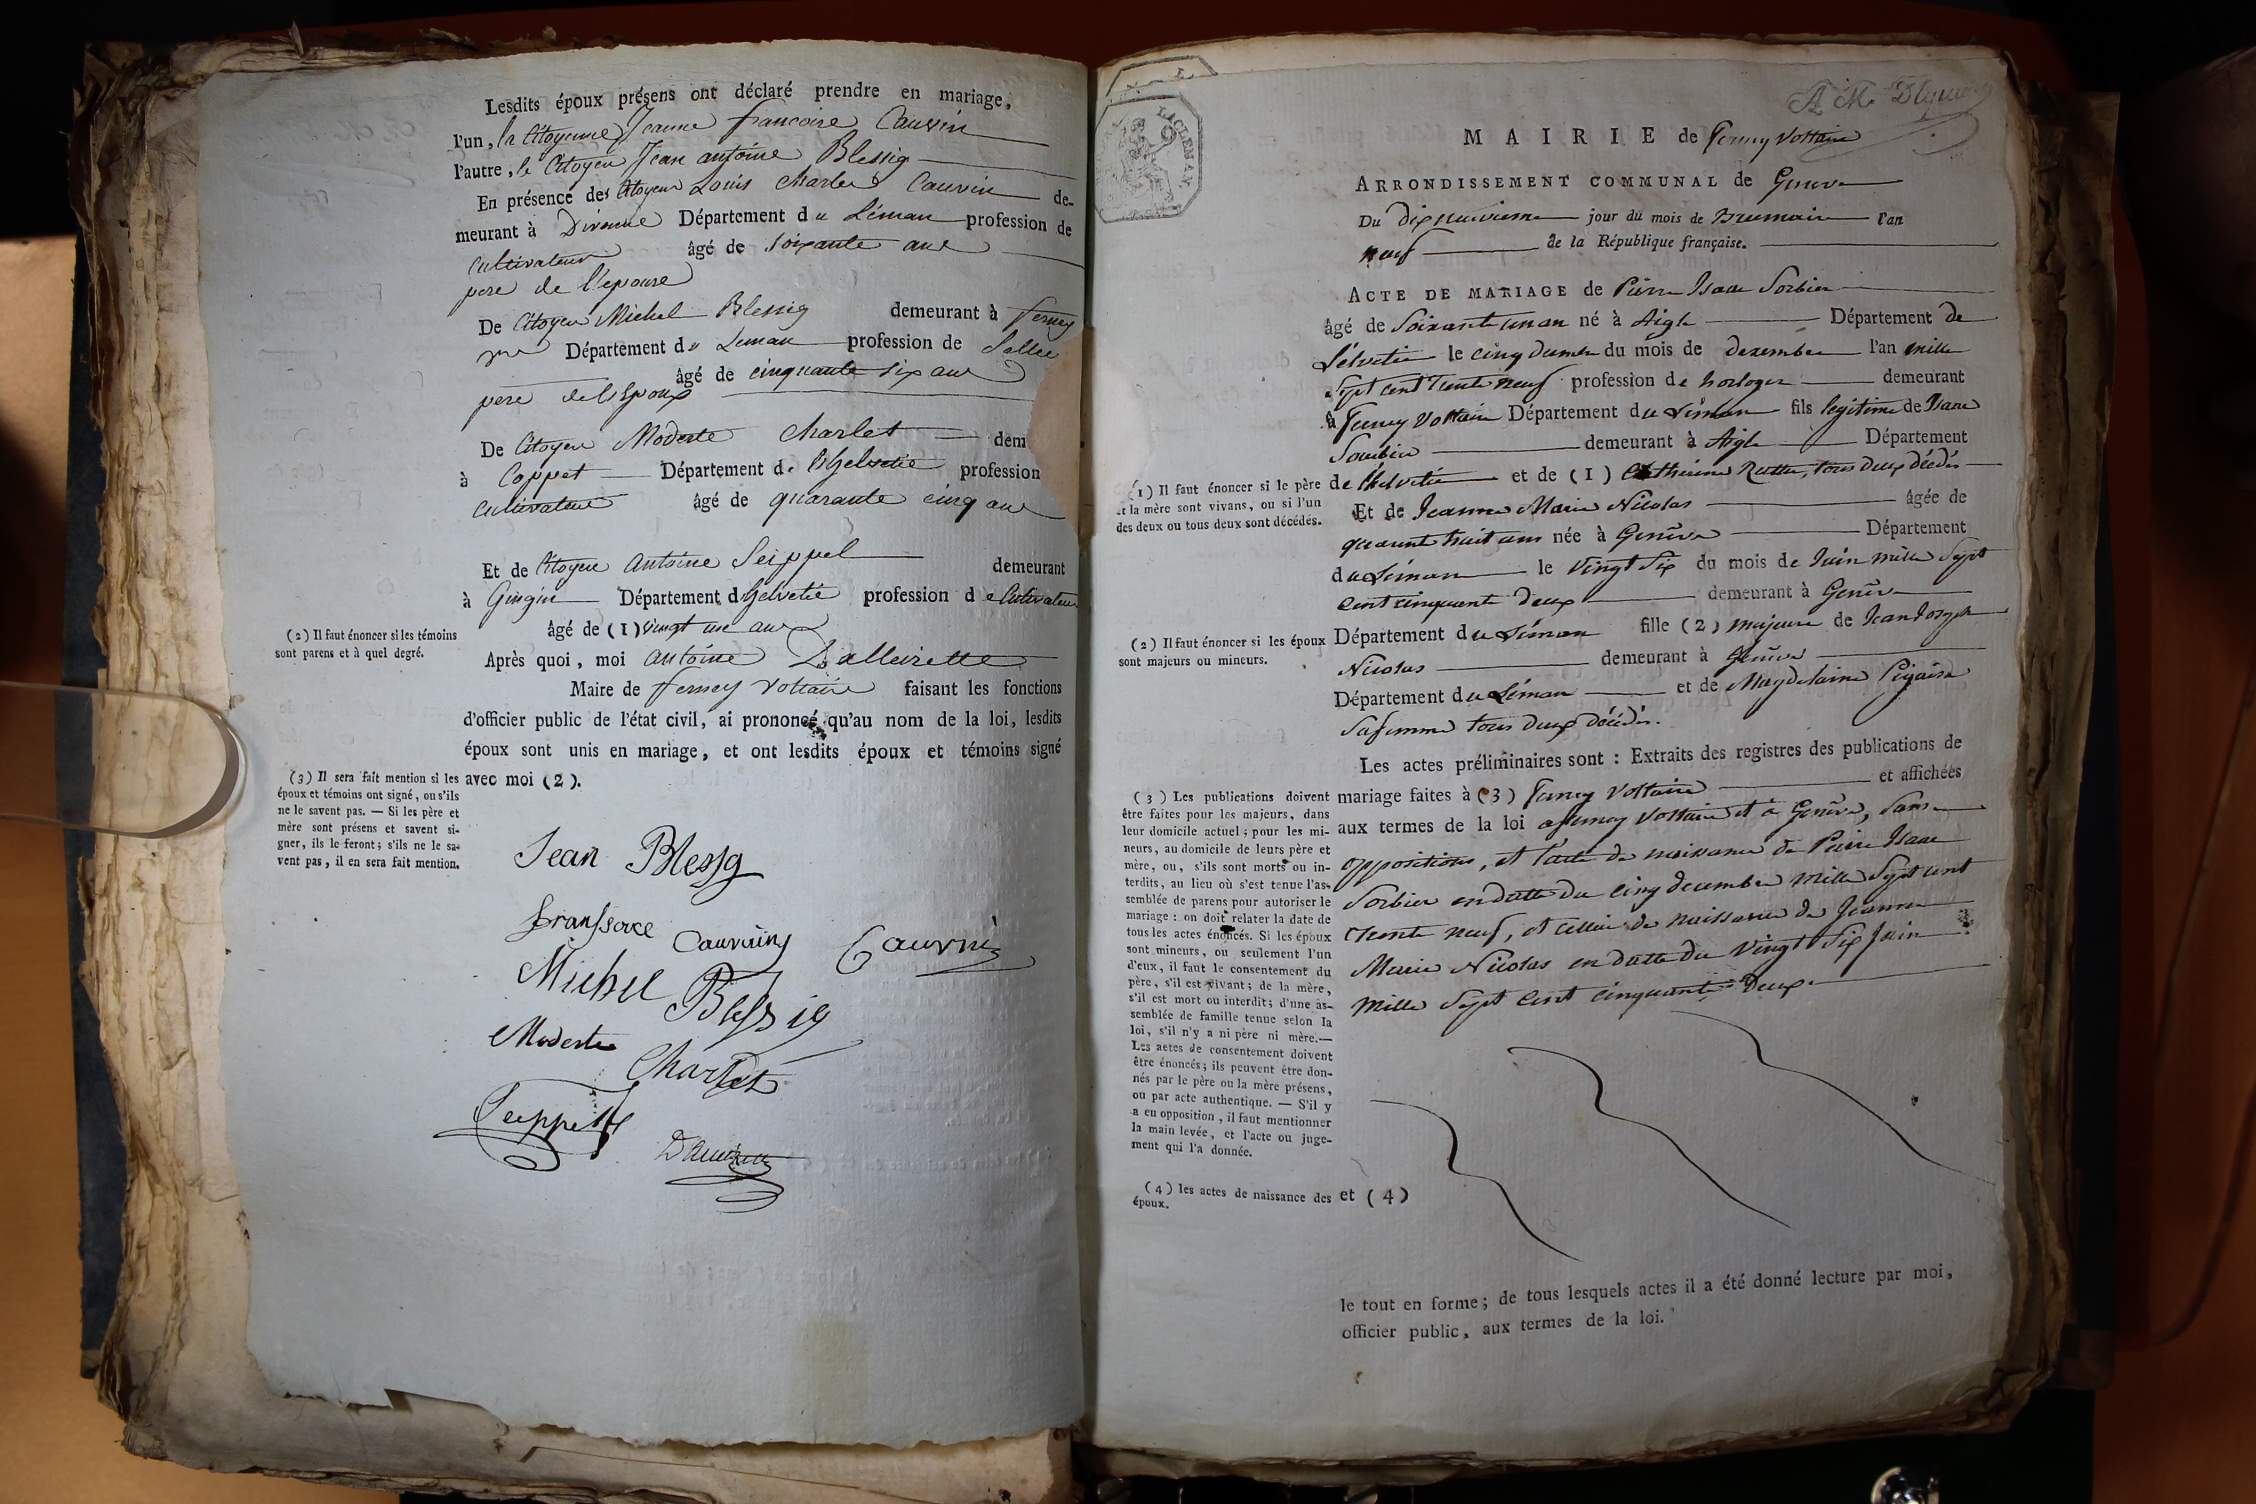 Lesdits époux présens ont déclaré prendre en mariage,
l'un, la Citoyenne Jeanne francoise Cauvin
l'autre, le Citoyen Jean antoine Blessig
En présence des Citoyen Louis Charles Cauvin de-
meurant à Divonne Département du Léman profession de
Cultivateur âgé de soixante ans
pere de l'epouse
De Citoyen Michel Blessig demeurant à ferney
Département du Leman profession de
âgé de cinquante six ans
pere de l'Epoux
De Citoyen Modeste Charlet dem
à Coppet Département de l'helvetie profession
Cultivateur âgé de quarante cinq ans
Et de Citoyen Antoine Seippel demeurant
à Gingin Département d'helvetie profession de Cultivateur
âgé de (1) vingt une ans
Après quoi, moi antoine Dalleizette
Maire de ferney voltaire faisant les fonctions
d'officier public de l'état civil, ai prononcé qu'au nom de la loi, lesdits
époux sont unis en mariage, et ont lesdits époux et témoins signé
avec moi (2).
(2) Il faut énoncer si les témoins
sont parens et à quel degré.
(3) Il sera fait mention si les
époux et témoins ont signé, ou s'ils
ne le savent pas. — Si les père et
mère sont présens et savent si-
gner, ils le feront; s'ils ne le sa-
vent pas, il en sera fait mention.
Jean Blessig
Cauvin
Michel Blessig
Modeste Charlet
Seippel
MAIRIE de Ferney Voltaire
ARRONDISSEMENT COMMUNAL de Geneve
Du dix neuvieme jour du mois de Brumaire l'an
neuf de la République française.
ACTE DE MARIAGE de Pierre Isaac Sorbier
âgé de Soixante un an né à Aigle Département de
L'élvetie le cinq du mois de dexembre l'an mille
Sept cent trente neuf profession de horloger demeurant
à Ferney Voltaire Département du Léman fils legitime de Isaac
Sourbier demeurant à Aigle Département
de l'hélvétie et de (1) Catherine Rutter, tous deux décédés
Et de Jeanne Marie Nicolas âgée de
quarante huit ans née à Genêve Département
du Léman le Vingt Six du mois de Juin mille Sept
cent cinquante deux demeurant à Genêve
Département du Léman fille (2) majeure de Jean Joseph
Nicolas demeurant à Genêve
Département du Léman et de Magdelaine
Sa femme tous deux décédés.
Les actes préliminaires sont : Extraits des registres des publications de
mariage faites à (3) Ferney Voltaire et affichées
aux termes de la loi a ferney Voltaire et à Genêve, Sans
oppositions, et l'acte de naissance de Pierre Isaac
Sorbier en datte du cinq decembre mille Sept cent
trente neuf, et celui de naissance de Jeanne
Marie Nicolas en datte du Vingt Six Juin
mille Sept cent cinquante deux
et (4)
le tout en forme; de tous lesquels actes il a été donné lecture par moi,
officier public, aux termes de la loi.
(1) Il faut énoncer si le père
et la mère sont vivans, ou si l'un
des deux ou tous deux sont décédés.
(2) Il faut énoncer si les époux
sont majeurs ou mineurs.
(3) Les publications doivent
être faites pour les majeurs, dans
leur domicile actuel; pour les mi-
neurs, au domicile de leurs père et
mère, ou, s'ils sont morts ou in-
terdits, au lieu où s'est tenue l'as-
semblée de parens pour autoriser le
mariage : on doit relater la date de
tous les actes énoncés. Si les époux
sont mineurs, ou seulement l'un
d'eux, il faut le consentement du
père, s'il est vivant; de la mère,
s'il est mort ou interdit; d'une as-
semblée de famille tenue selon la
loi, s'il n'y a ni père ni mère.—
Les actes de consentement doivent
être énoncés; ils peuvent être don-
nés par le père ou la mère présens,
ou par acte authentique. — S'il y
a eu opposition, il faut mentionner
la main levée, et l'acte ou juge-
ment qui l'a donnée.
(4) les actes de naissance des
époux.